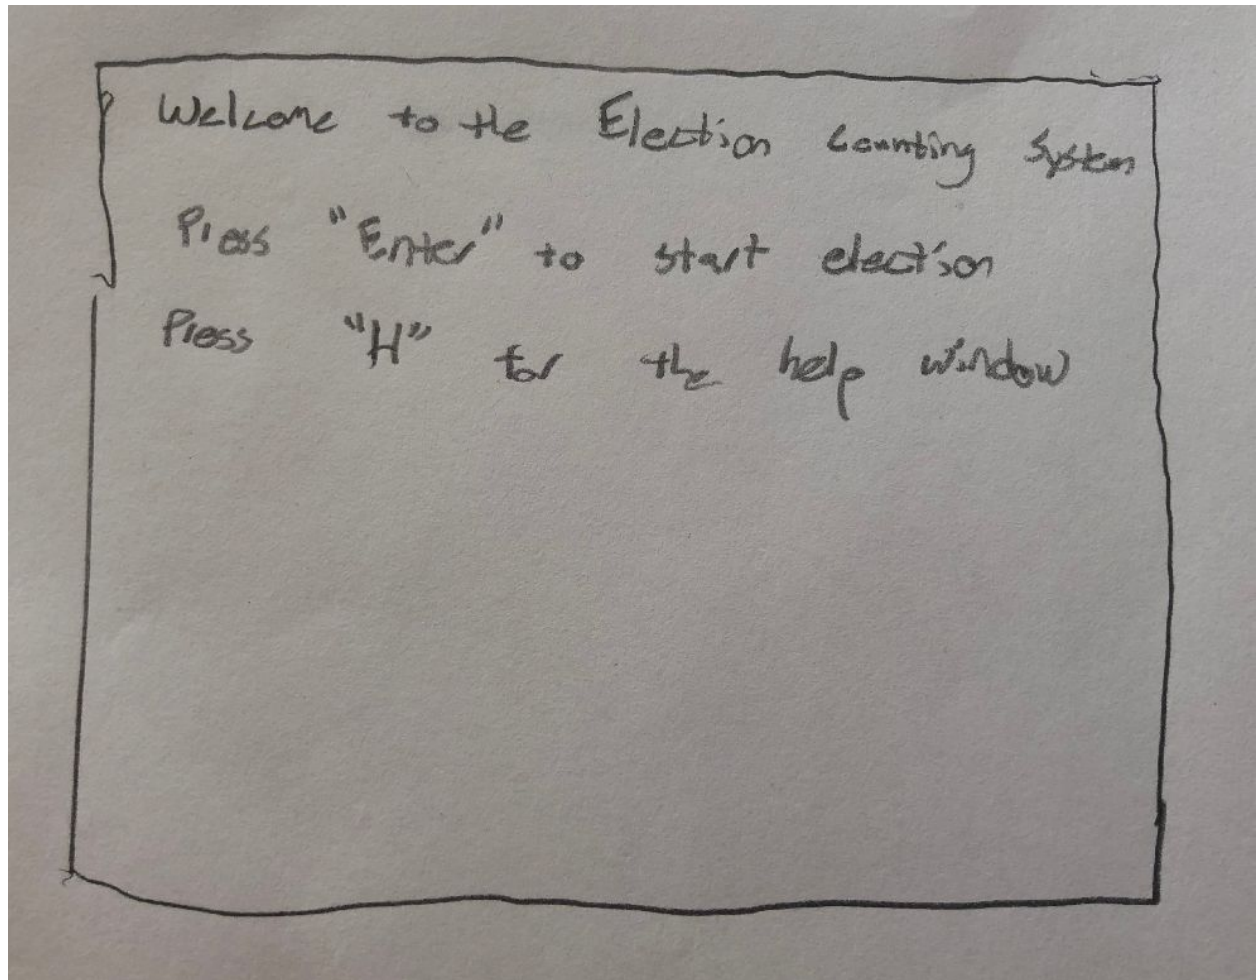 Welcome to the Election counting system
Press "Enter" to start election
Press "H" for the help window